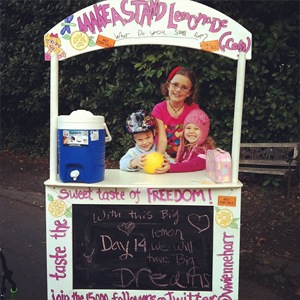 MAKE A STAND Lemonade
(.com)
What Do you Stand For?
SWEET TASTE OF FREEDOM!
taste the
With this Big
lemon
Day 14 we will
two Big
Dreams
Vivienneharr
join the 15000 followers on Twitter